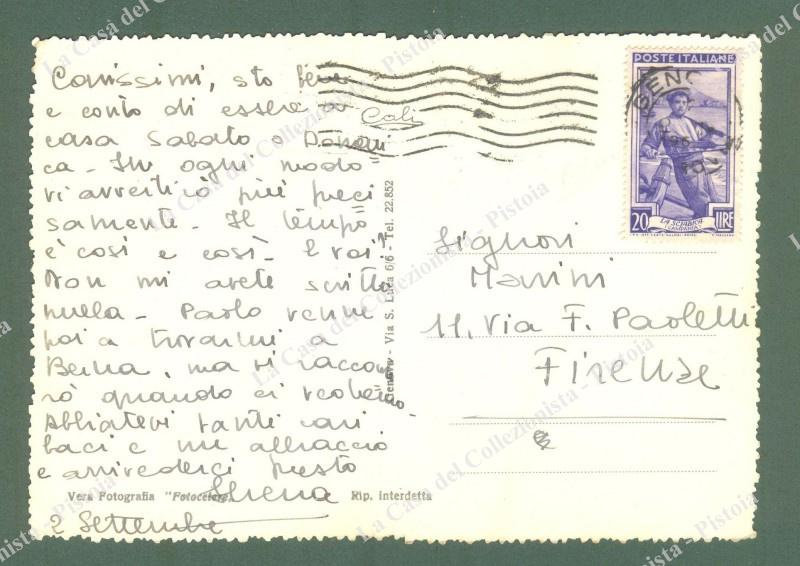 Carissimi, sto bene
e conto di essere a
casa Sabato o Domeni
ca - In ogni modo
vi avvertirò più preci
samente - Il tempo
è così e così - E voi?
Non mi avete scritto
nulla - Paolo venne
poi a trovarmi a
ma vi raccon
rò quando ci vedremo
Abbiatevi tanti cari
baci e un abbraccio
e arrivederci presto
2 Settembre
Vera Fotografia "Fotocelere" Rip. interdetta
Genova - Via S. Luca 6/6 - Tel. 22.852
POSTE ITALIANE
GENOVA
20 LIRE
LA SCIABICA
(CAMPANIA)
Signori
Manini
11, Via F. Paoletti
Firenze
La Casa del Collezionista - Pistoia